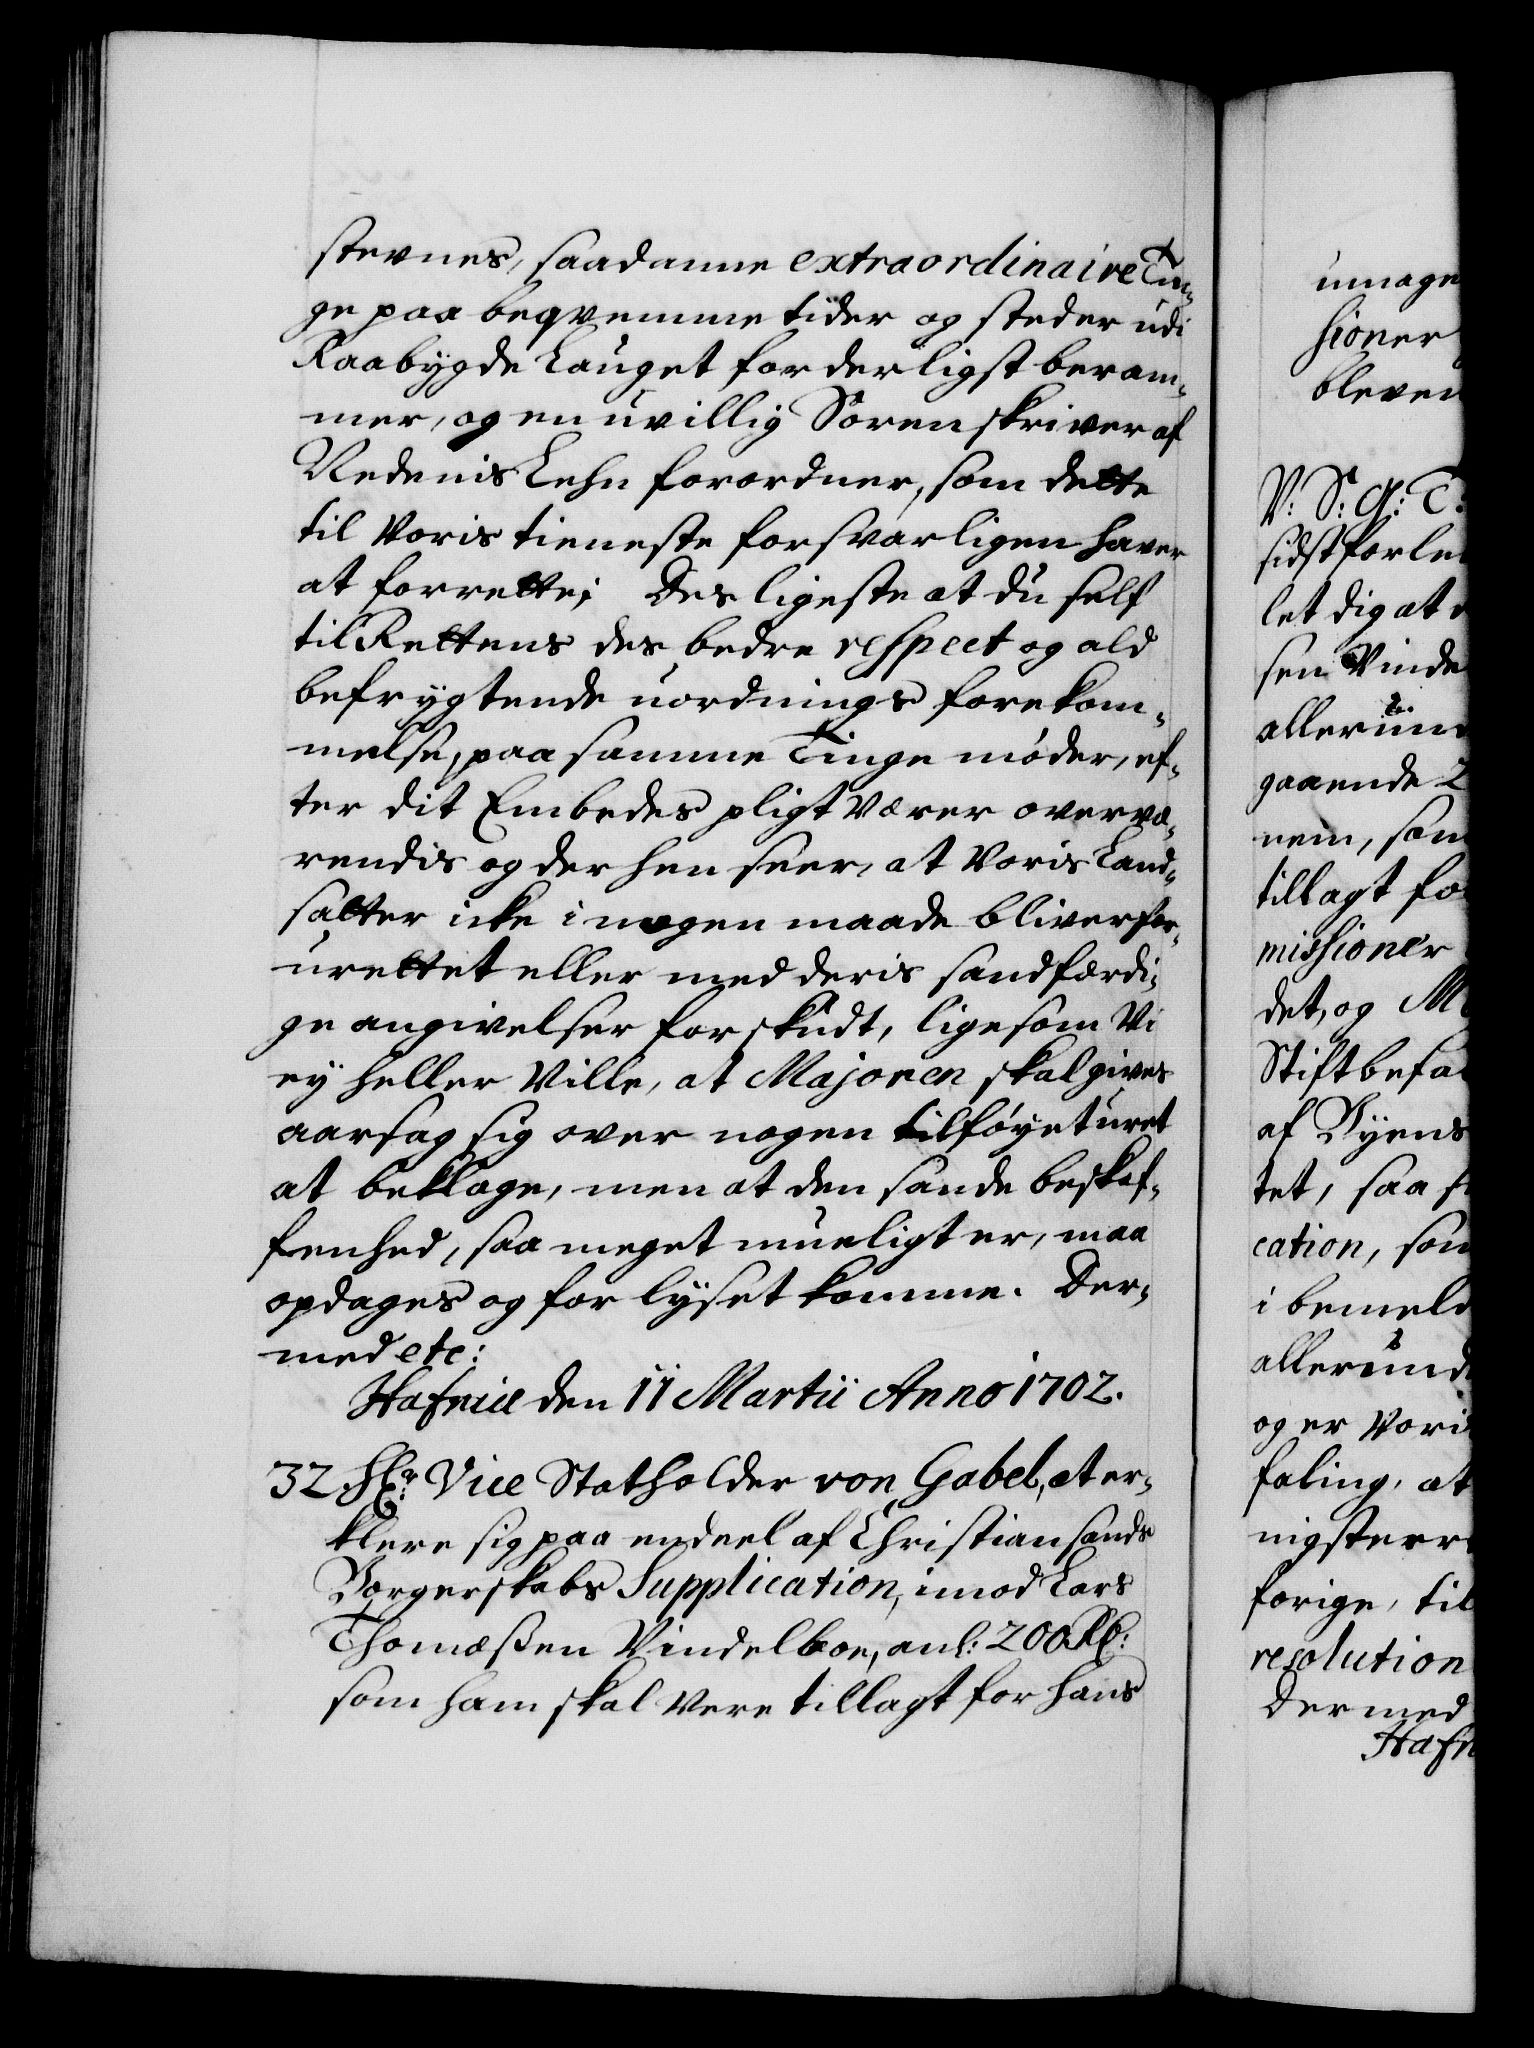 stevnes, saadanne extraordinaire Tin-
ge paa beqvemme tider og steder udi
Raabygde Lauget forderligst beram-
mer, og en uvillig Sorenskriver af
Nedenis Lehn forordner, som dette
til Voris tieneste forsvarligen haver
at forrette; Des ligeste at du self
til Rettens des bedre respect og ald
befrygtende uordnings forekom-
melse, paa samme Tinge møder, ef-
ter dit Embedes pligt Værer overvæ-
rendis og der hen seer, at Voris Land-
satter icke i nogen maade bliver for-
urettet eller med deris sandfærdi-
ge angivelser forskudt, ligesom Vi
ey heller Ville, at Majoren skal gives
aarsag sig over nogen tilføyet uret
at beklage, men at den sande beskaf-
fenhed, saa meget mueligt er, maa
opdages og for lyset komme. Der-
med etc:
Hafniæ den 11 Martii Anno 1702.
32. Hr: Vice Statholder von Gabel, at er-
klere sig paa en deel af Christiansands
Borgerskabs Supplication, imod Lars
Thomæßen Vindelboe, anl: 200 Rd:
som ham skal Vere tillagt for hans
unage
sioner
bleven
V: S: G: T:
sidst forle
let dig at
sen Vinde
allerund
gaaende 2
nem, som
tillagt for
missioner
det, og M
Stiftbefa
af Byens
tet, saa
cation, som
i bemeld
allerund
og er Vori
faling, at
nigst er
forige, til
resolution
Dermed
Hafn